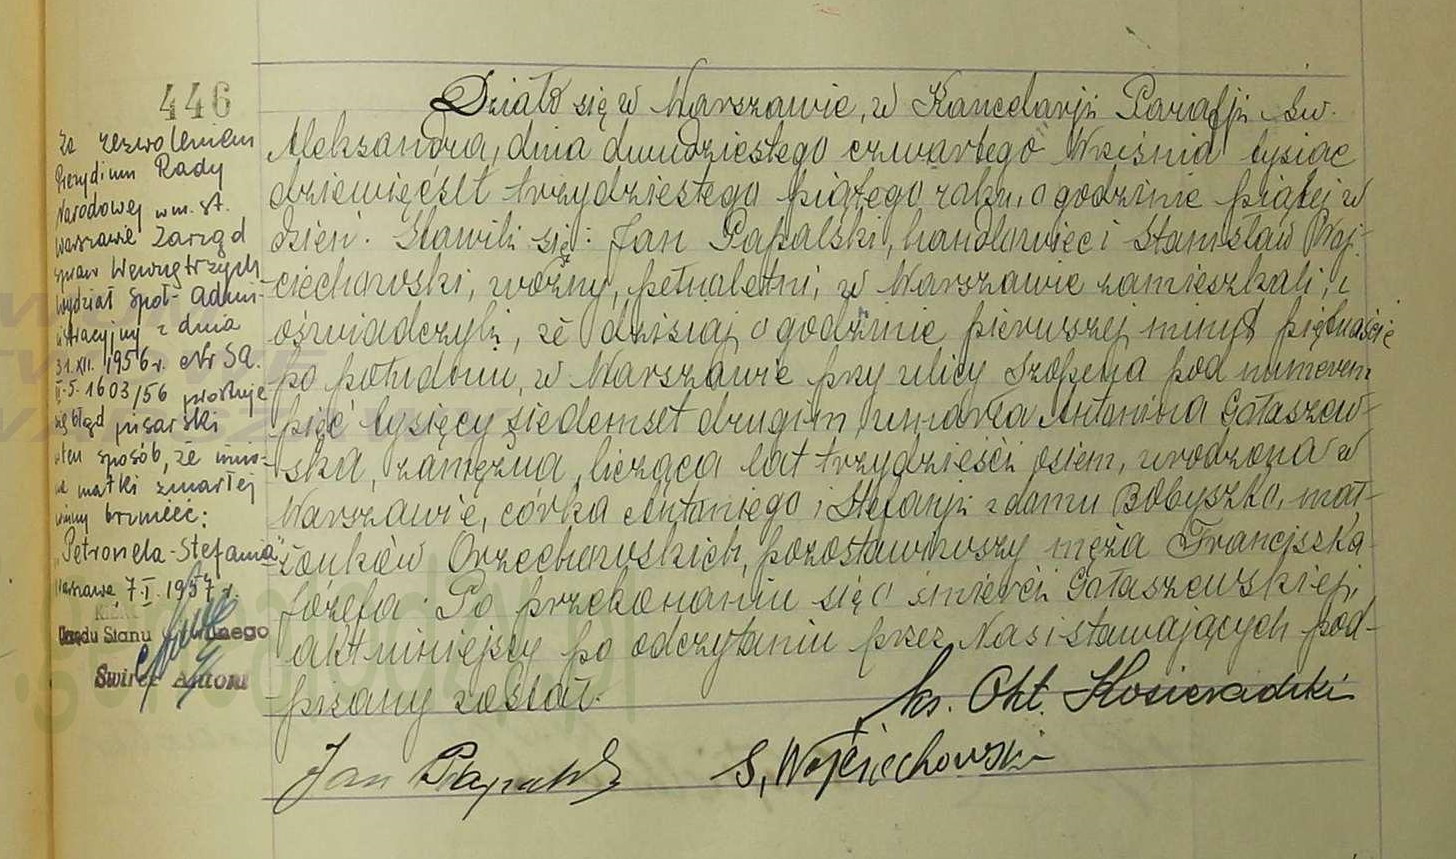 446
Za zezwoleniem
Prezydium Rady
Narodowej w m. st.
Warszawie Zarząd
Spraw Wewnętrznych
Wydział Społ-Admi-
nistracyjny z dnia
31.XII.1956 r. Nr SA.
II-5-1603/56 prostuje
się błąd pisarski
w ten sposób, że imio-
na matki zmarłej
winny brzmieć:
"Petronela-Stefania"
Warszawa 7.I.1957 r.
Urzędu Stanu Cywilnego
Śwircz Antoni
Działo się w Warszawie, w Kancelarji Parafji św.
Aleksandra, dnia dwudziestego czwartego Września tysiąc
dziewięćset trzydziestego piątego roku, o godzinie piątej w
dzień. Stawili się: Jan Papalski, handlowiec i Stanisław Woj-
ciechowski, woźny, pełnoletni, w Warszawie zamieszkali, i
oświadczyli, że dzisiaj o godzinie pierwszej minut piętnaście
po południu, w Warszawie przy ulicy Szopena pod numerem
pięć tysięcy siedemset drugim, umarła Antonina Gałaszew-
ska, zamężna, licząca lat trzydzieści osiem, urodzona w
Warszawie, córka Antoniego i Stefanji z domu Bobyszko, mał-
żonków Orzechowskich, pozostawiwszy męża Franciszka-
Józefa. Po przekonaniu się o śmierci Gałaszewskiej,
akt niniejszy po odczytaniu przez Nas i stawających pod-
pisany został.
ks. Okt. Kosieradzki
Jan Papalski S. Wojciechowski